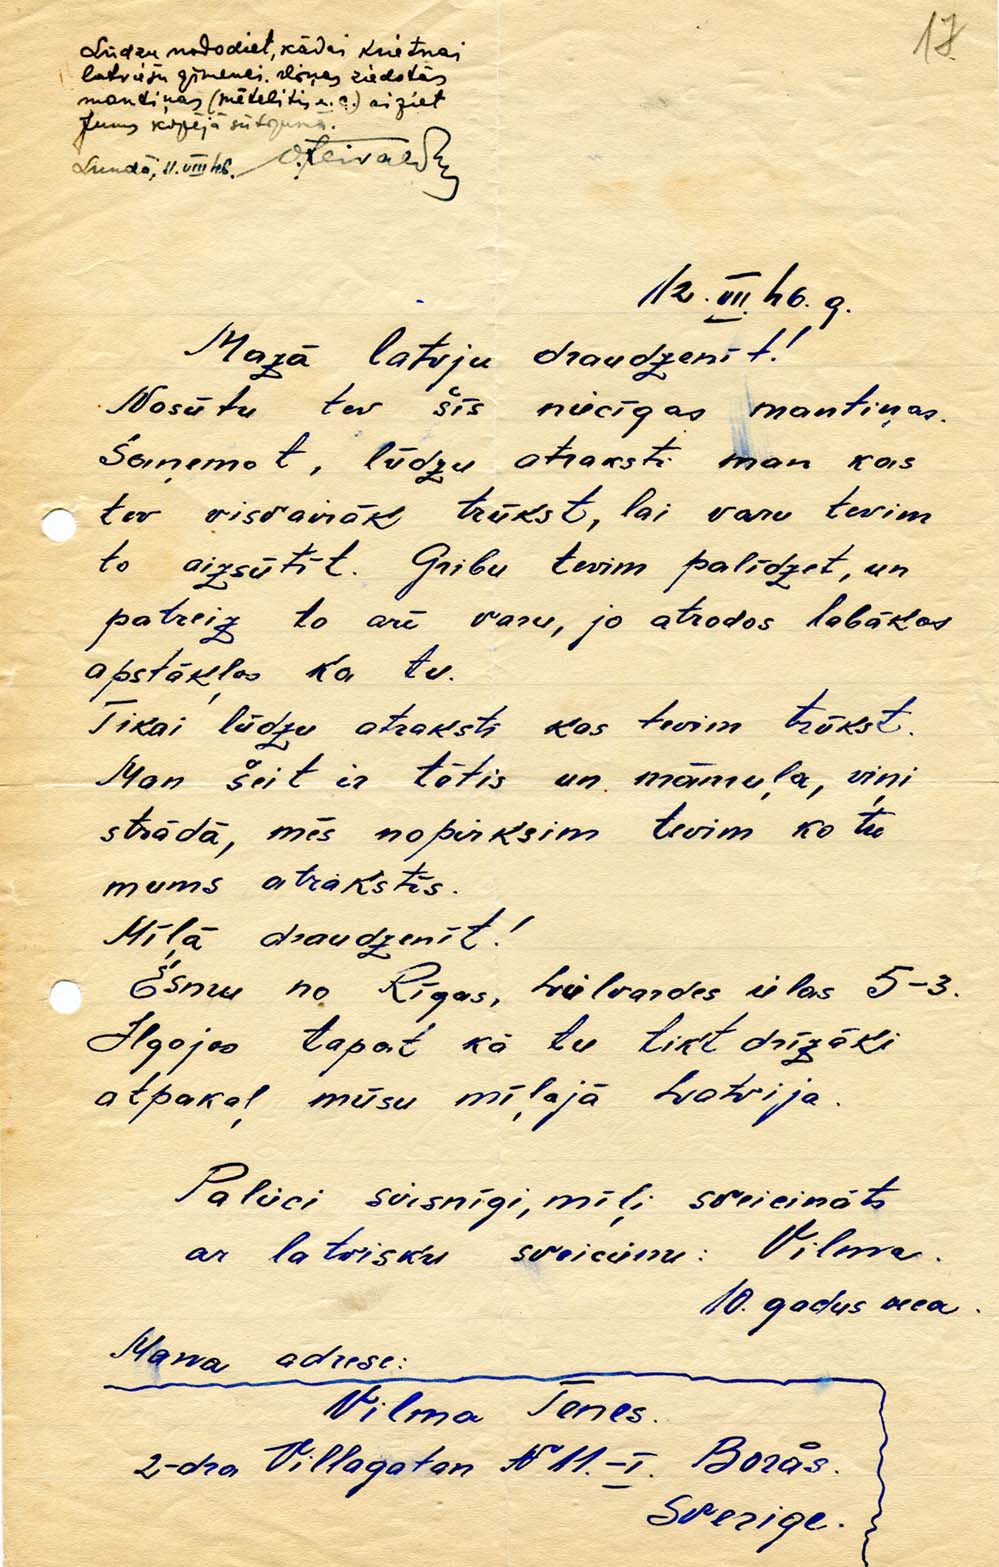 17
Lūdzu nododiet, kādai krietnai
latviešu ģimenei. ziedotās
mantiņas (mētelītis u.c.) aiziet
Jums kopējā sūtījumā.
Lundā, 11.VIII46.
12.VII.46.g.
Mazā latvju draudzenīt!
Nosūtu tev šīs niecīgas mantiņas.
Saņemot, lūdzu atraksti man kas
tev visvairāk trūkst, lai varu tevim
to aizsūtīt. Gribu tevim palīdzet, un
patreiz to arī varu, jo atrodos labākos
apstākļos ka tu.
Tikai lūdzu atraksti kas tevim trūkst.
Man šeit ir tētis un māmuļa, viņi
strādā, mēs nopirksim tevim ko tu
mums atrakstīs.
Mīļā draudzenīt!
Esmu no Rīgas, Lielvardes ielas 5-3.
Ilgojos tapat kā tu tikt drīzāki
atpakaļ mūsu mīļajā Latvija.
Palieci sviesnīgi, mīļi sveicināts
ar latvisku sveicienu: Vilma.
10. gadus veca.
Mana adrese:
Vilma Tenes.
2-dra Villagatan N 11.-I. Borås.
Sverige.